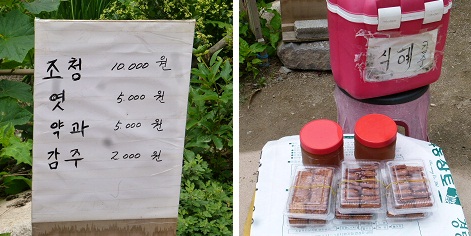 조청 10.000 원
엿 5.000 원
약과 5.000 원
감주 2000 원
식혜